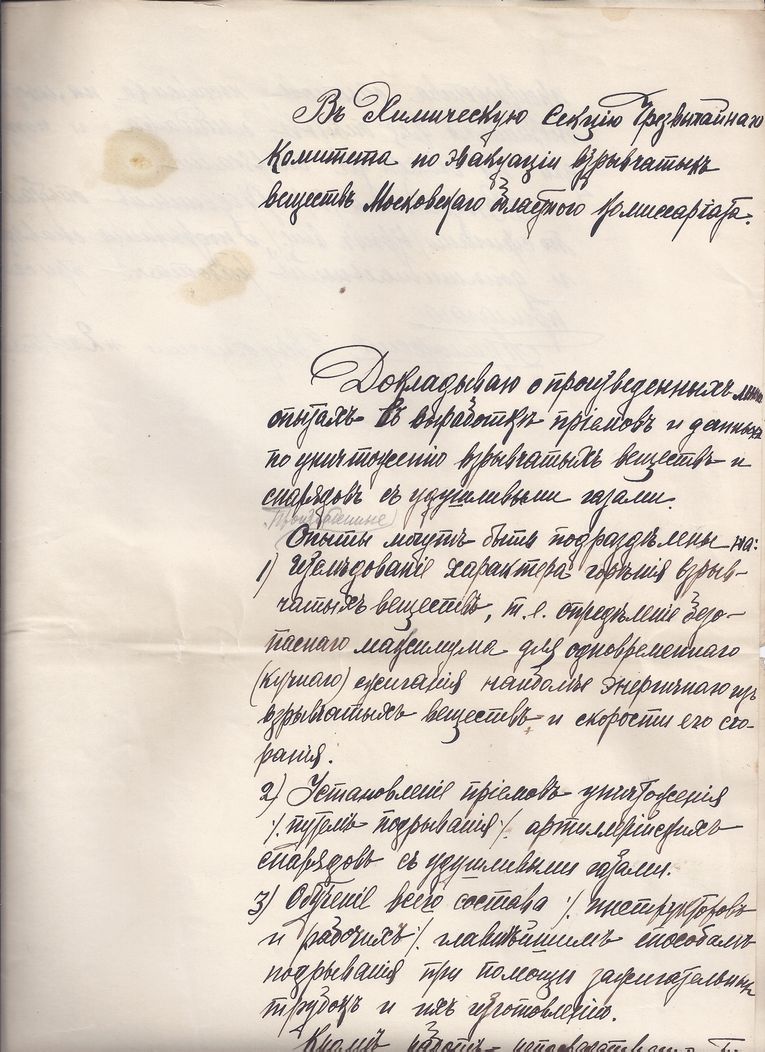 Въ Химическую Секцію Чрезвычайнаго
Комитета по эвакуаціи взрывчатыхъ
веществъ Московскаго Областного Комиссаріата.
Докладываю о произведенныхъ мною
опытахъ въ выработкѣ пріемовъ и данныхъ
по уничтоженію взрывчатыхъ веществъ и
снарядовъ съ удушливыми газами.
Произведенные
Опыты могутъ быть подраздѣлены на:
1) Изслѣдованіе характера горѣнія взрыв-
чатыхъ веществъ, т.е. опредѣленіе безо-
паснаго максимума для одновременнаго
(кучнаго) сжиганія наиболѣе энергичнаго изъ
взрывчатыхъ веществъ и скорости его сго-
ранія.
2) Установленіе пріемовъ уничтоженія
·/. путемъ подрыванія ·/. артиллерійскихъ
снарядовъ съ удушливыми газами.
3) Обученіе всего состава ·/. инструкторовъ
и рабочихъ ·/. главнѣйшимъ способамъ
подрыванія при помощи зажигательныхъ
трубокъ и ихъ изготовленію.
Кромѣ работъ